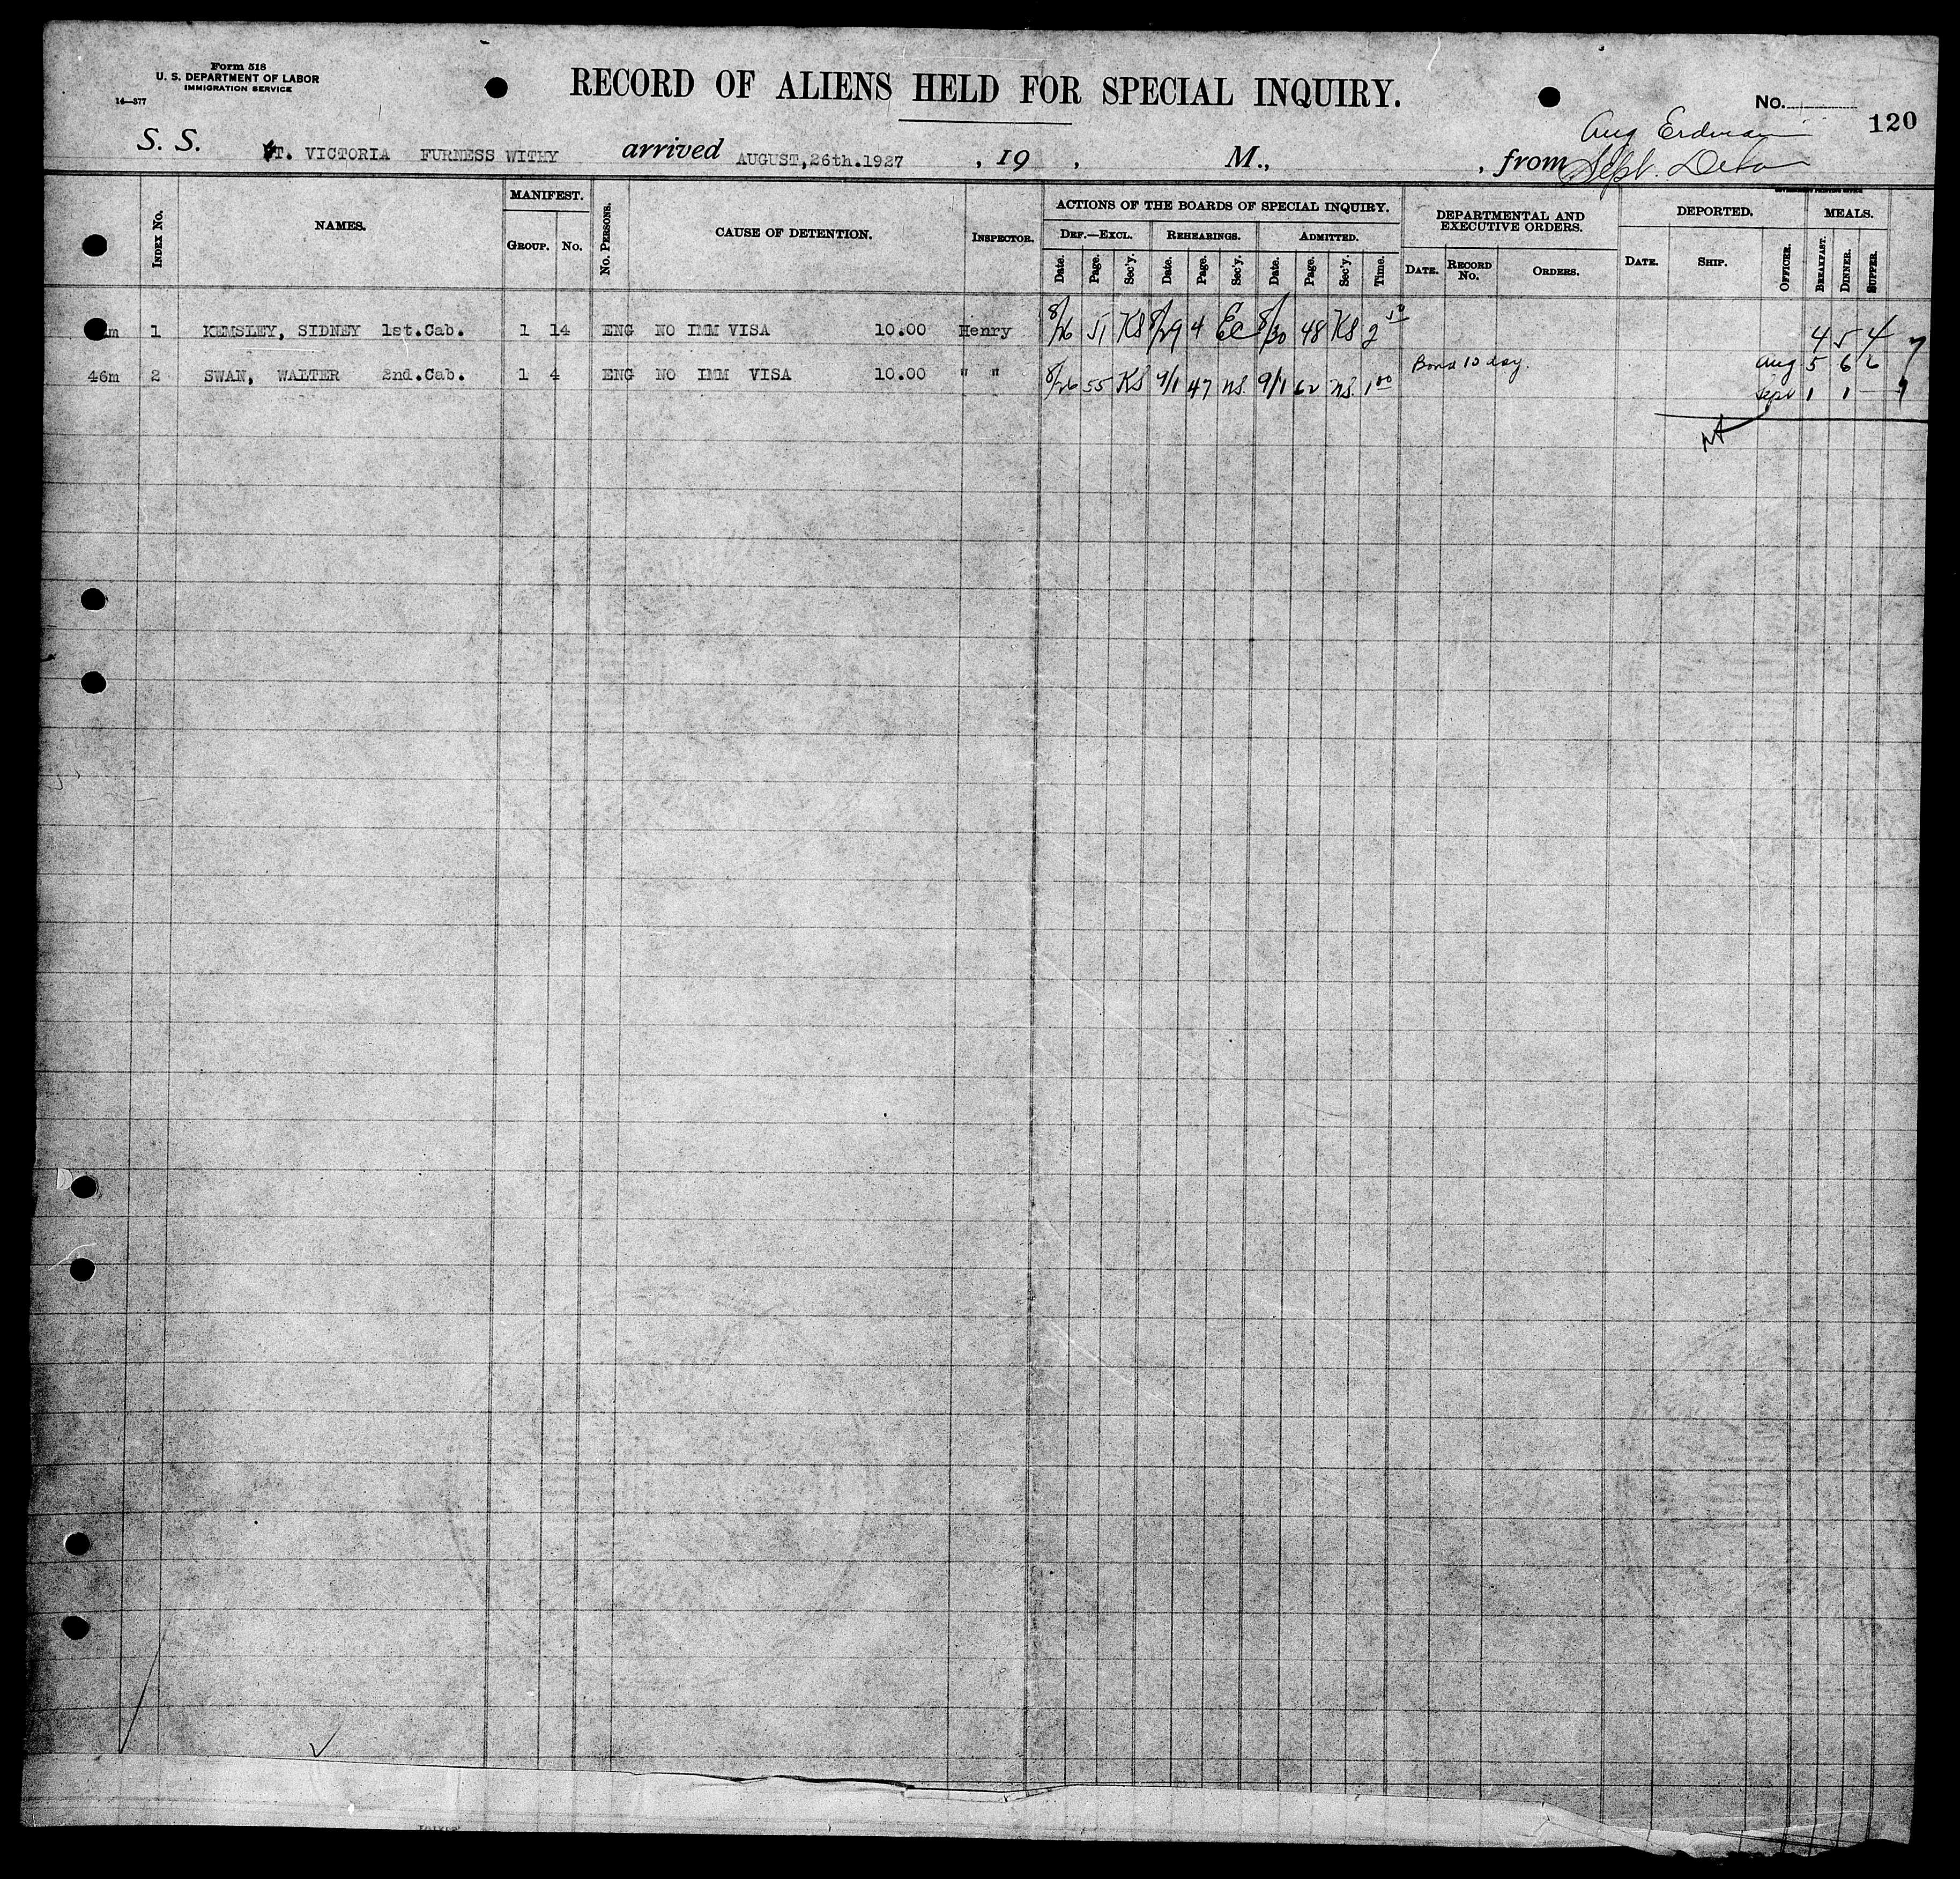 Form 518
U. S. DEPARTMENT OF LABOR
IMMIGRATION SERVICE
14—377
RECORD OF ALIENS HELD FOR SPECIAL INQUIRY.
No.
120
Aug Erdman
S. S. FT. VICTORIA FURNESS WITHY arrived AUGUST,26th.1927 , 19 , M., , from Sept.
GOVERNMENT PRINTING OFFICE
Index No. NAMES. MANIFEST. Group. No. No. Persons. CAUSE OF DETENTION. Inspector.
ACTIONS OF THE BOARDS OF SPECIAL INQUIRY.
Def.—Excl. Rehearings. Admitted.
Date. Page. Sec'y. Date. Page. Sec'y. Date. Page. Sec'y. Time.
DEPARTMENTAL AND EXECUTIVE ORDERS.
Date. Record No. Orders.
DEPORTED.
Date. Ship. Officer.
MEALS.
Breakfast. Dinner. Supper.
m 1 KEMSLEY, SIDNEY 1st.Cab. 1 14 ENG NO IMM VISA 10.00 Henry 8/26 51 KS 8/29 4 EC 8/30 48 KS 2 50 4 5 4
46m 2 SWAN, WALTER 2nd.Cab. 1 4 ENG NO IMM VISA 10.00 " " 8/26 55 KS 9/1 47 ns. 9/1 62 ns. 1 00 Bond 10 day. Aug 5 6 6
Sept 1 1 —